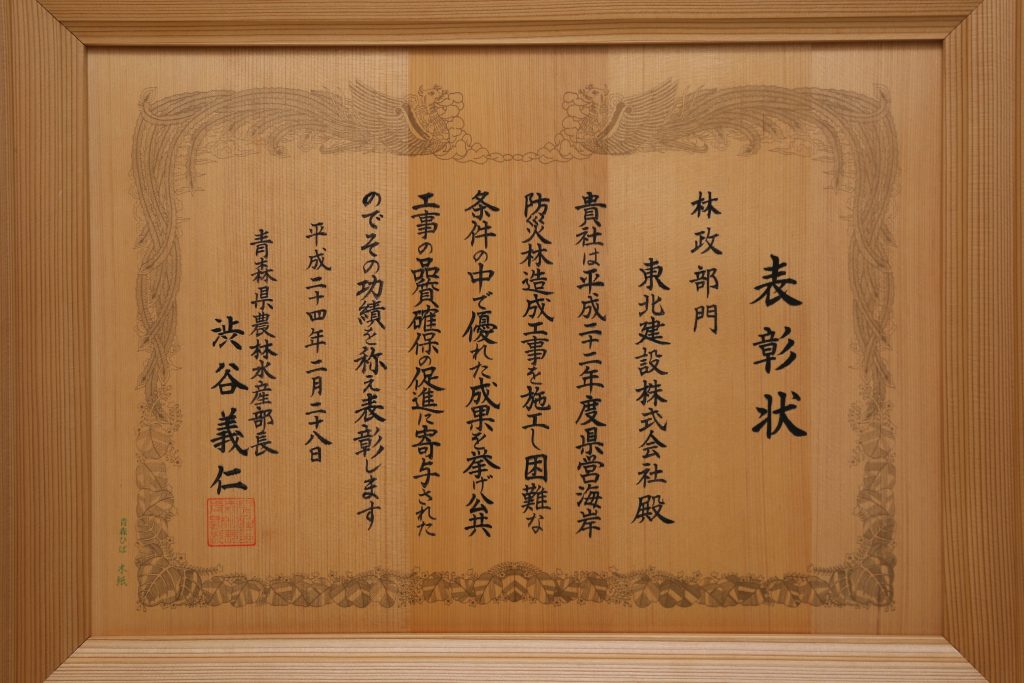 表彰状
林政部門
東北建設株式会社殿
貴社は平成二十二年度県営海岸
防災林造成工事を施工し困難な
条件の中で優れた成果を挙げ公共
工事の品質確保の促進に寄与された
のでその功績を称え表彰します
平成二十四年二月二十八日
青森県農林水産部長
渋谷義仁
青森ひば 木紙